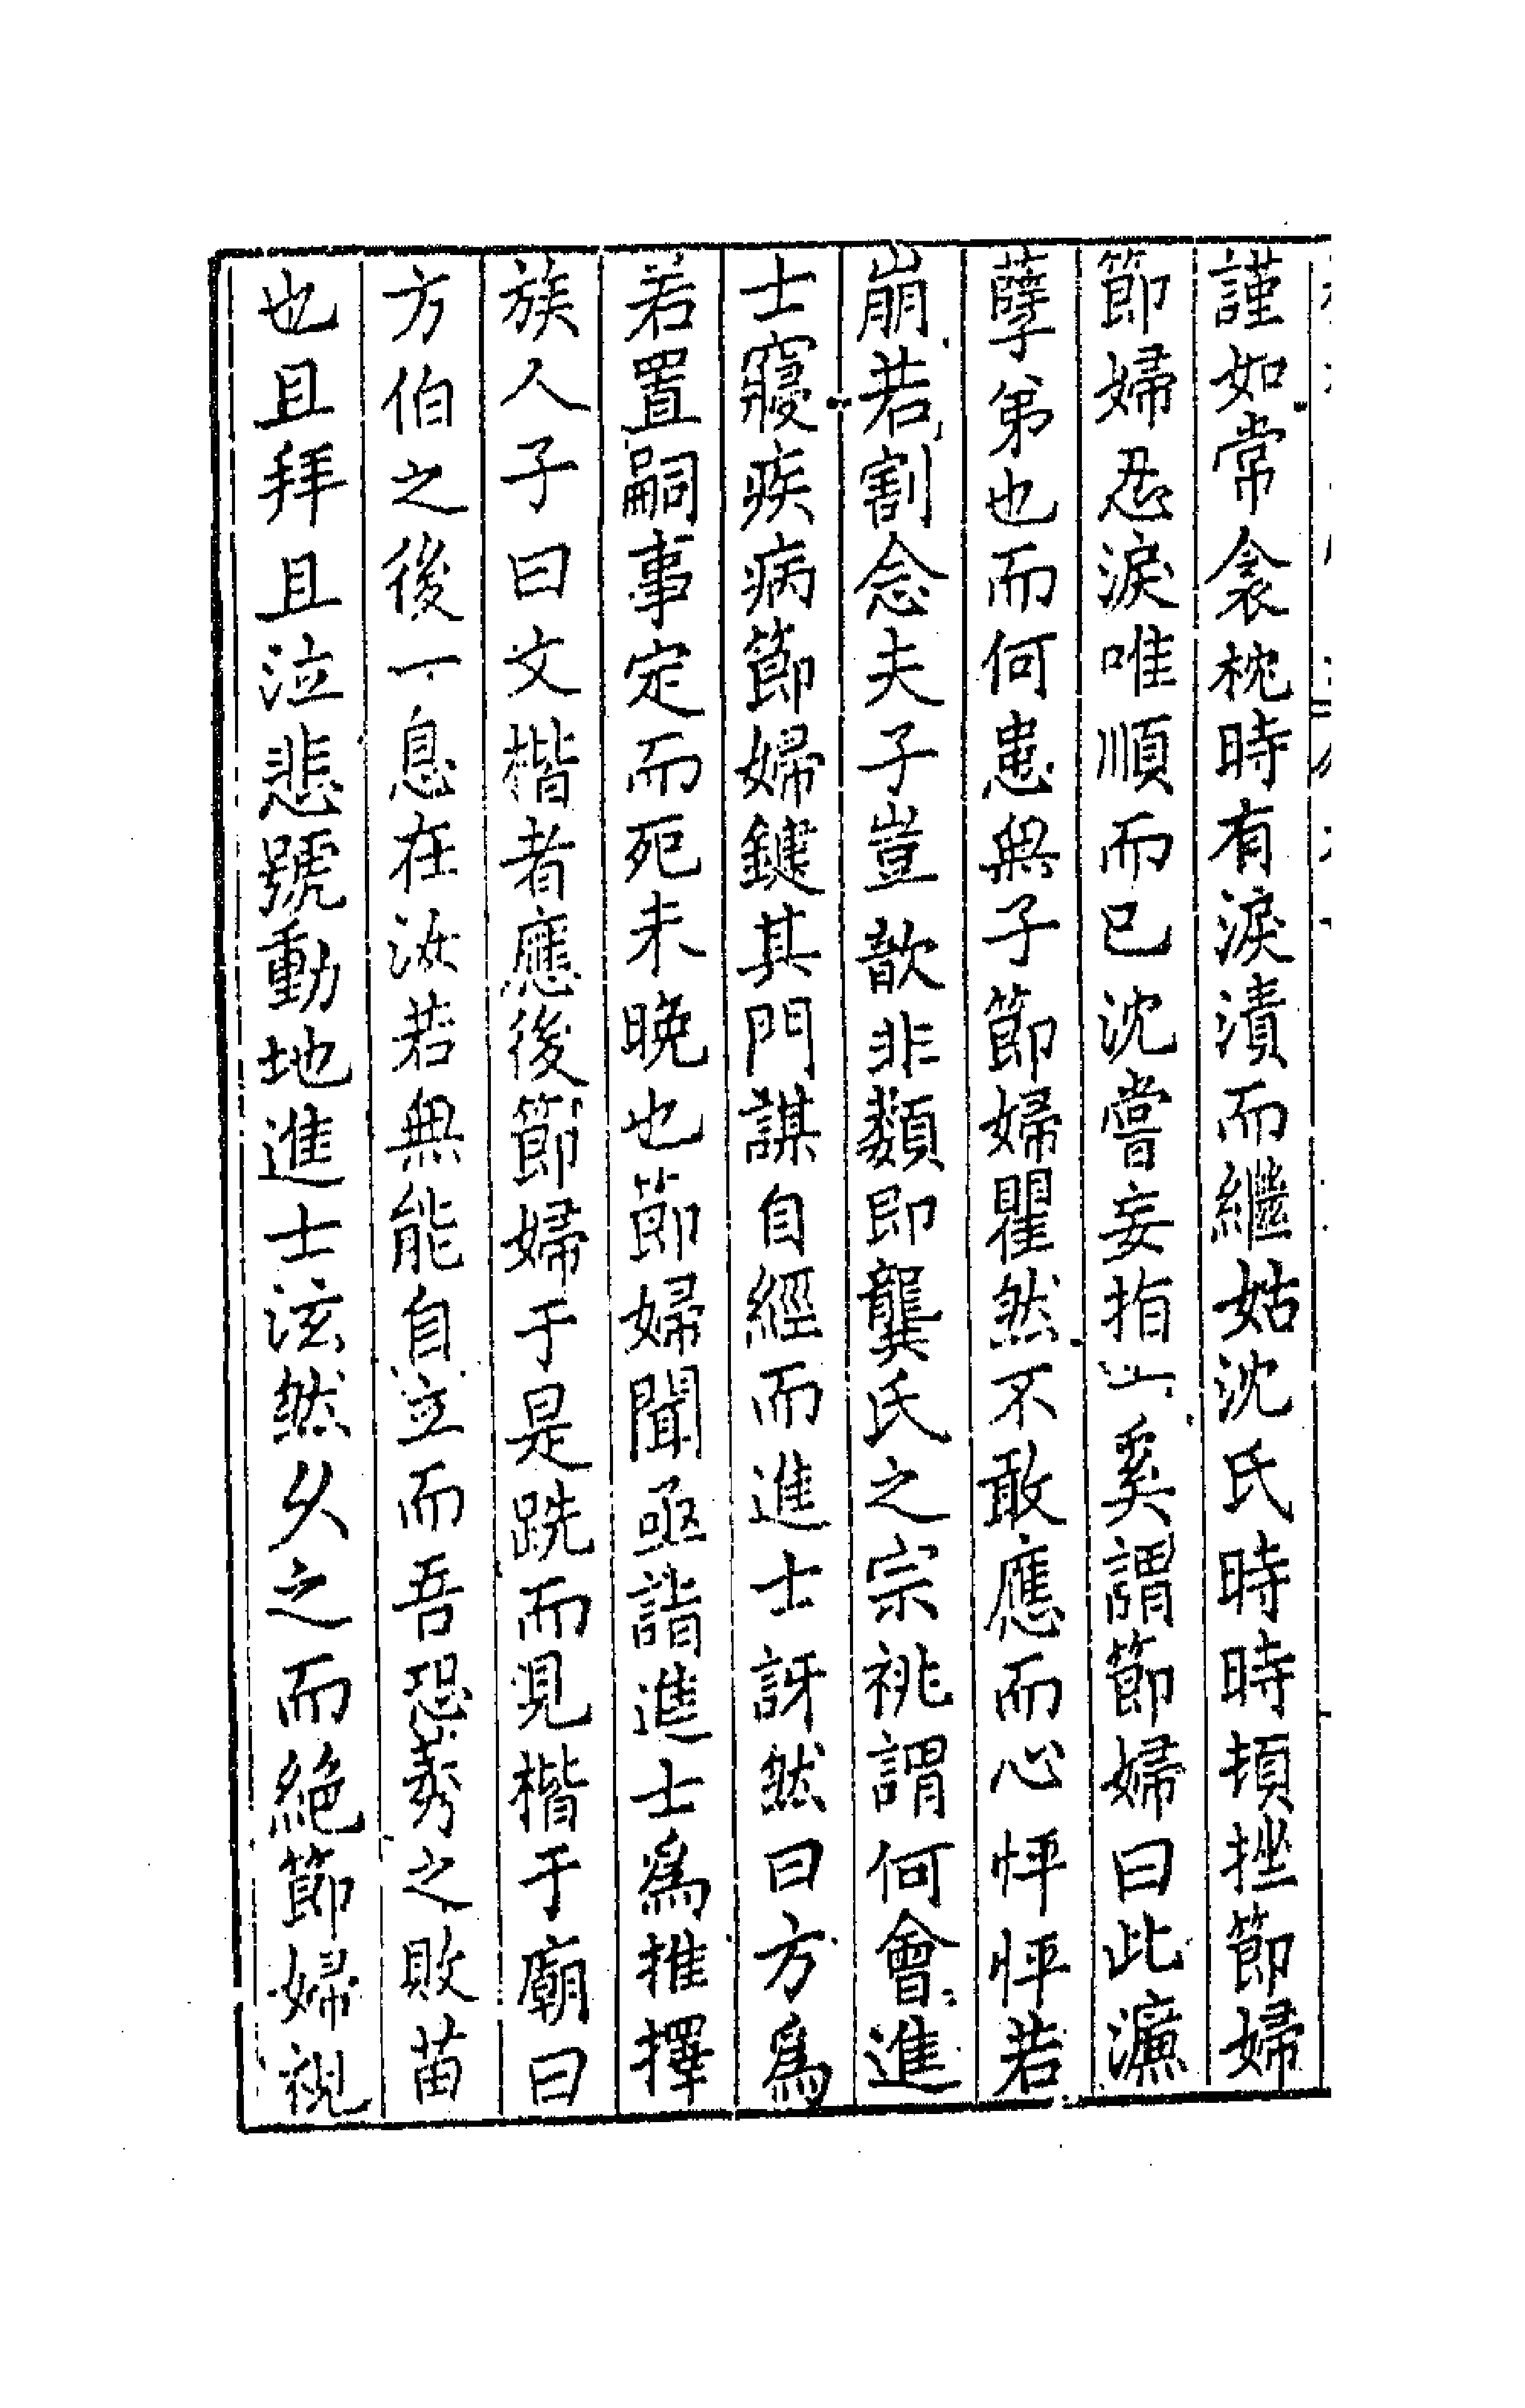 謹如常衾枕時有淚漬而繼姑沈氏時時頓挫節婦
節婦忍淚唯順而已沈嘗妾指奚謂節婦曰此濂
孽弟也而何患無子節婦瞿然不敢應而心怦怦若
崩若割念夫子豈歆非類即龔氏之宗祧謂何會進
士寢疾病節婦鍵其門謀自經而進士訝然曰方為
若置嗣事定而死未晚也節婦聞亟詣進士為推擇
族人子曰文楷者應後節婦于是跣而見楷于廟曰
方伯之後一息在汝若無能自立而吾恐莠之敗苗
也且拜且泣悲號動地進士泫然久之而絕節婦視